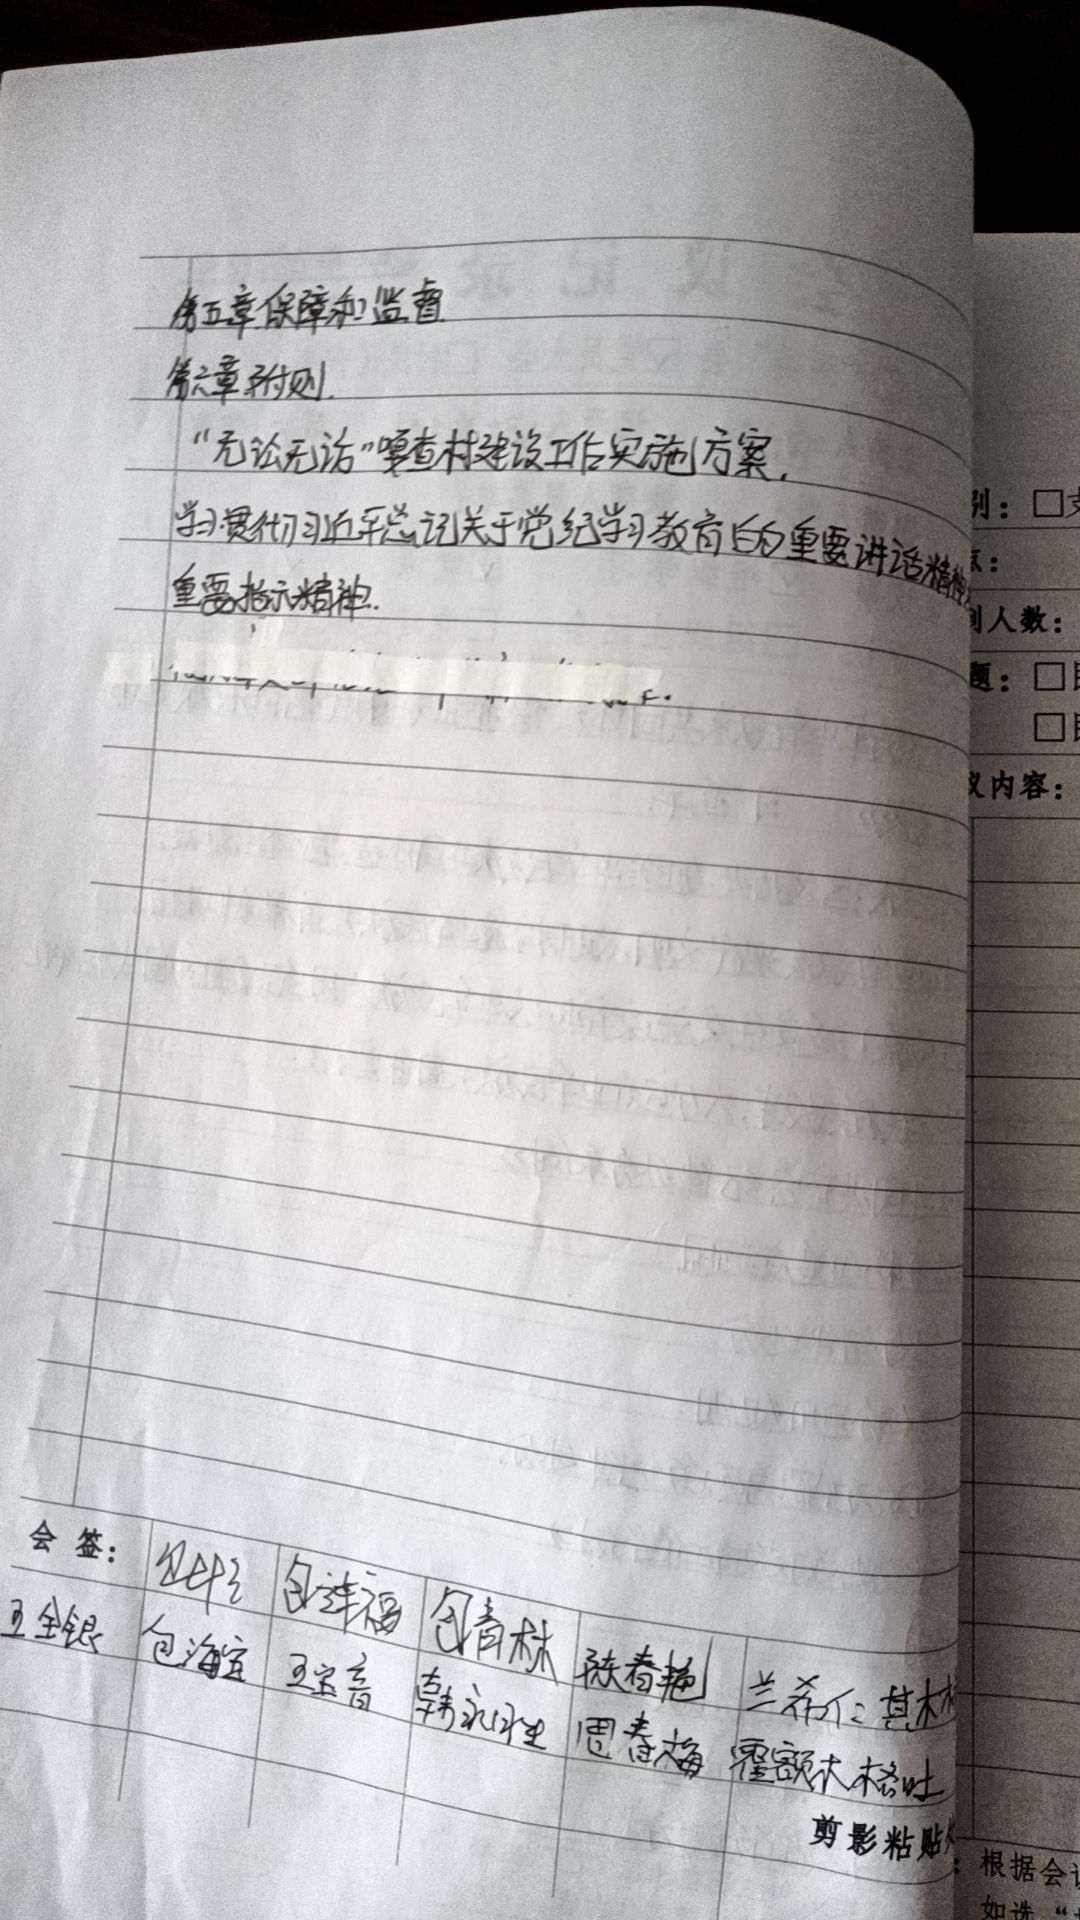 第五章保障和监督
第六章附则.
“无讼无访”嘎查村建设工作实施方案.
学习贯彻习近平总记关于党纪学习教育的重要讲话精神
重要指示精神.
会 签:
包祥福
包青林
陈春艳
兰希仁
其木格
王金银
包海宝
王宝音
韩永生
周春梅
霍额木格吐
剪影粘贴
别: □支
点:
到人数:
题: □
□
议内容:
根据会议
如选“